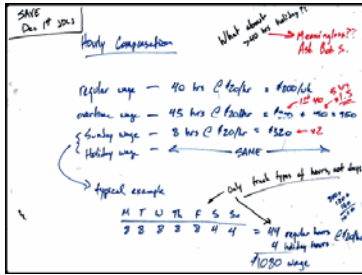 SAVE
Dec 1st 2013
Hourly Compensation
What about
>40 hrs holiday?!
Meaningless??
Ask Bob S.
regular wage — 40 hrs @ $20/hr = $800/wk
1st 40
5 hrs
x1.5
overtime wage — 45 hrs @ $20/hr = + 150 = 950
Sunday wage — 8 hrs @ $20/hr = $320 x2
Holiday wage — SAME
typical example
only track types of hours, not days
M T W Th F S Su
8 8 8 8 8 4 4
= 44 regular hours @ $20/hr
4 holiday hours
$1080 wage